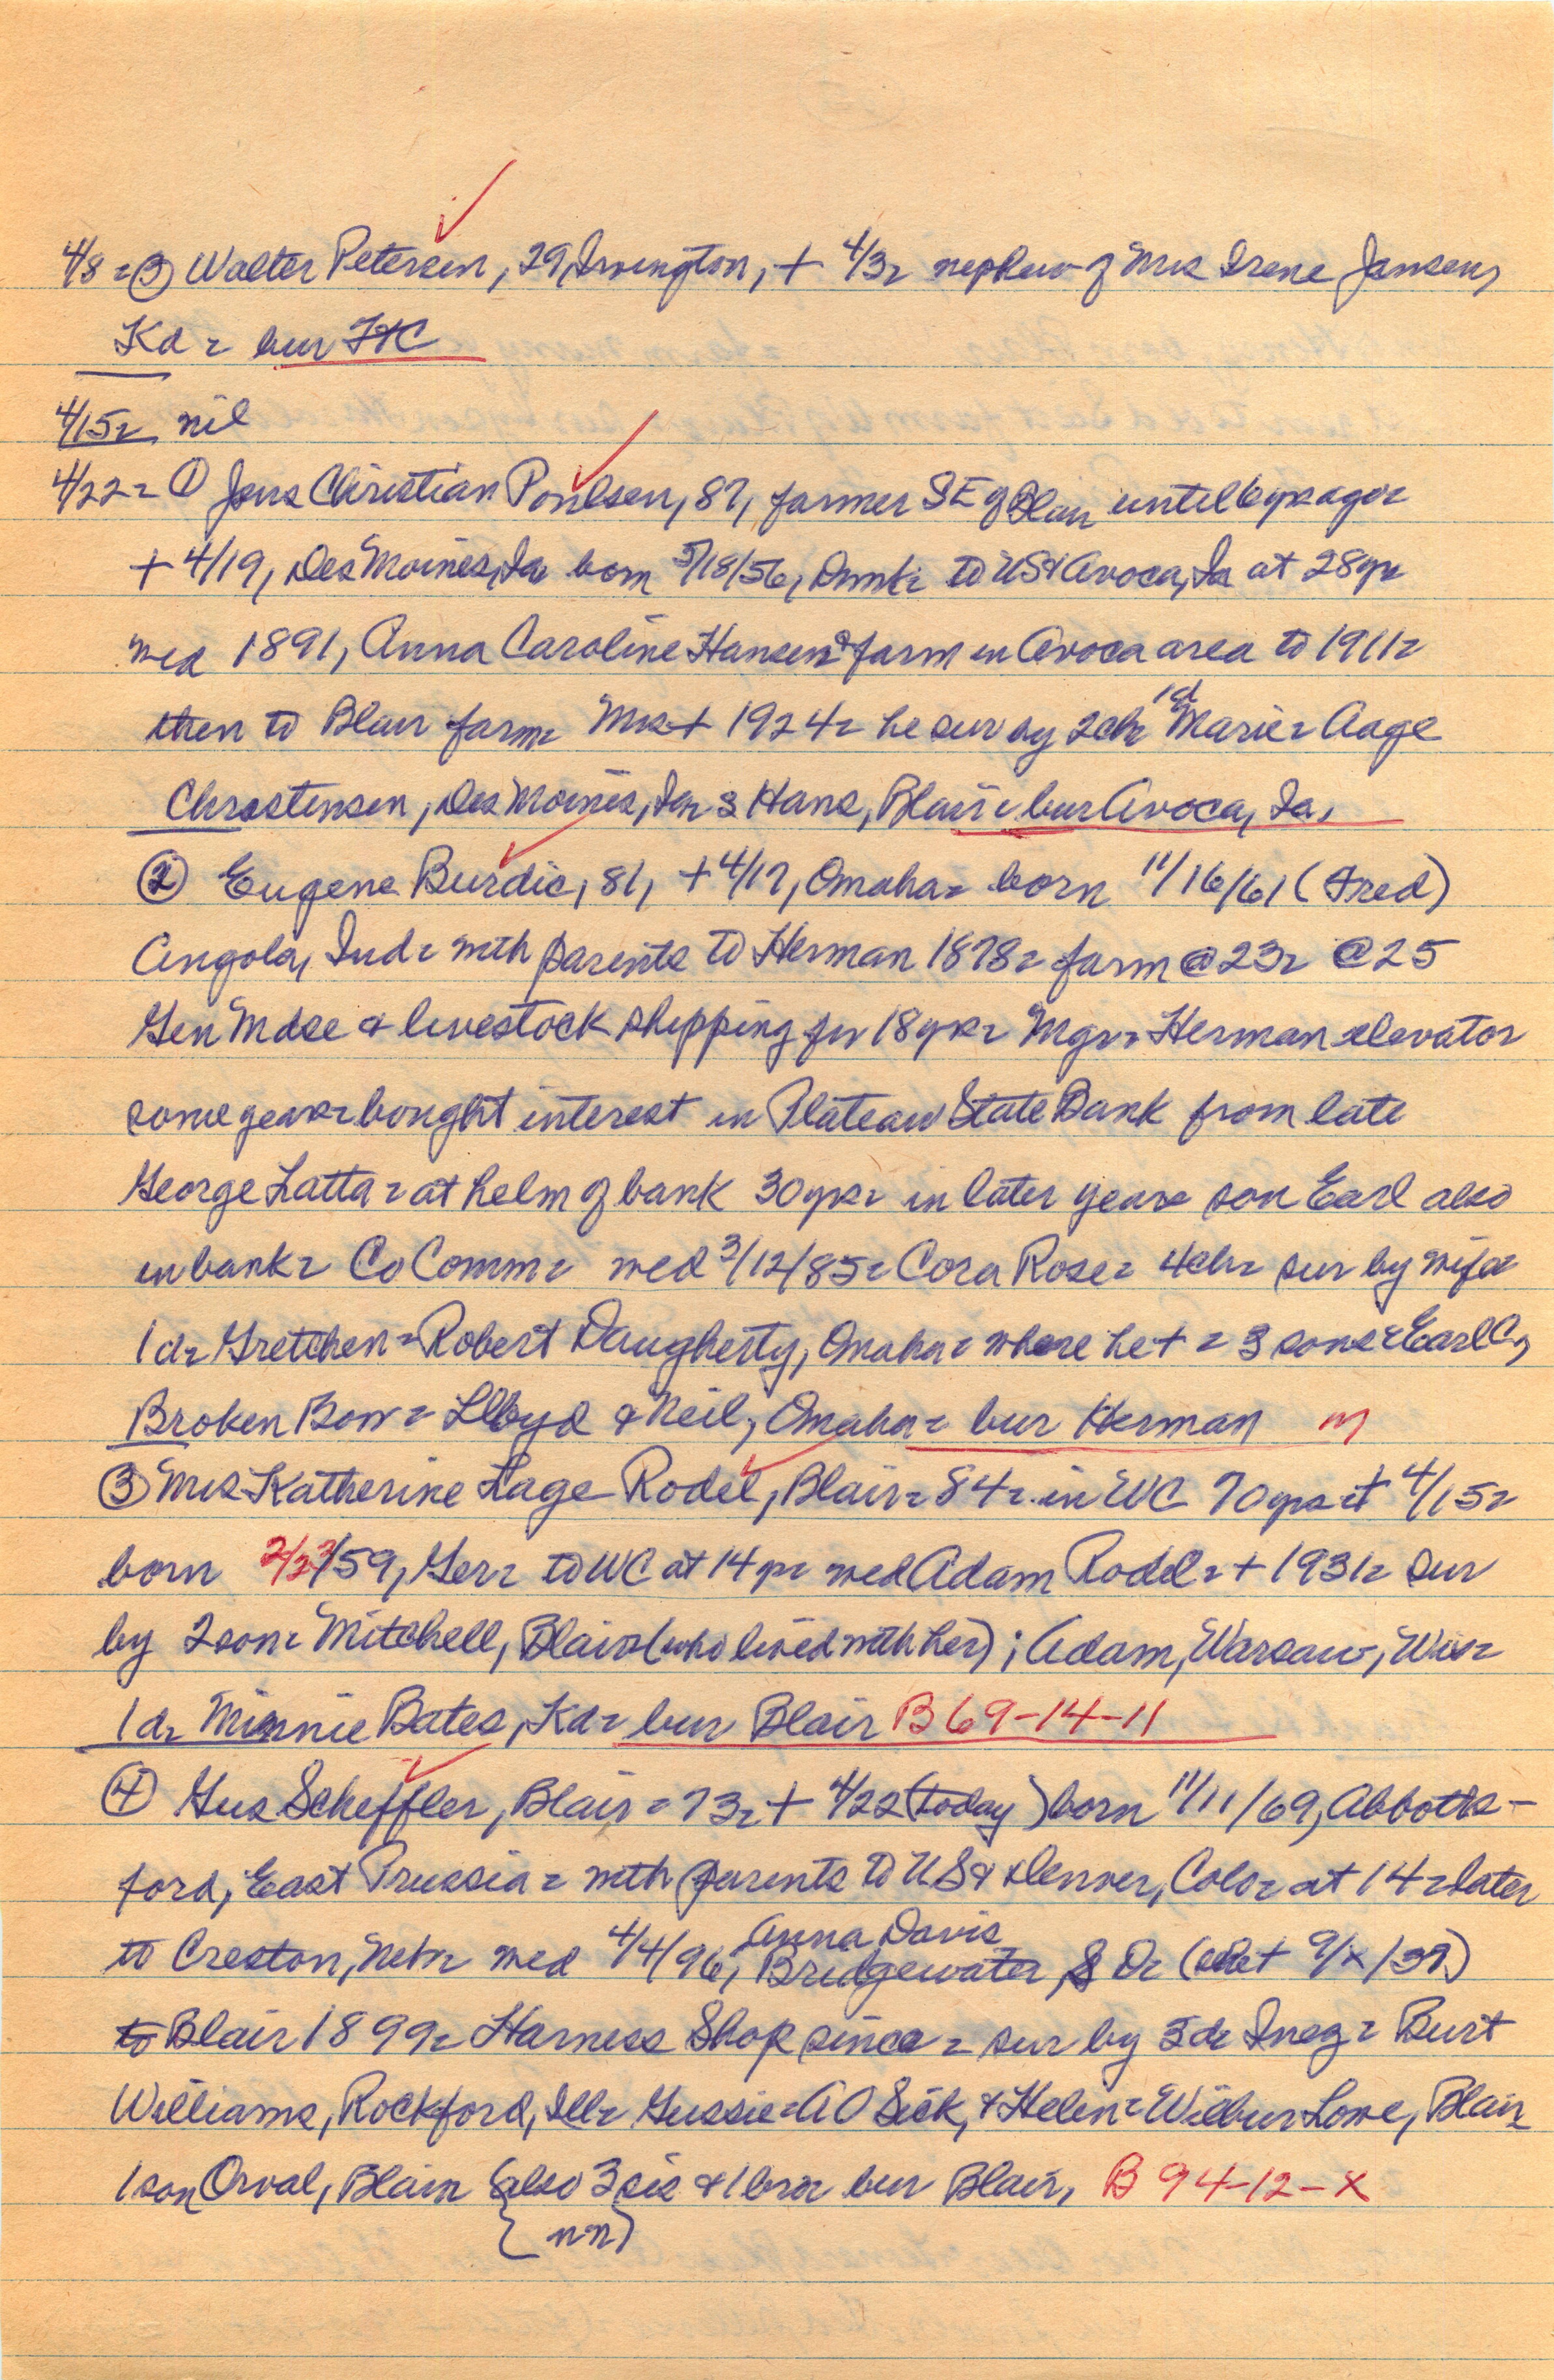 4/8 = ③ Walter Petersen, 29, Irvington, + 4/3 = nephew of Mrs Irene Jensen,
Kd = bur
4/15 = nil
4/22 = ① Jens Christian Poulsen, 87, farmer SE of Blair until 6 yrs ago =
+ 4/19, Des Moines, Ia born 5/18/56, Dnmk = to US & Avoca, Ia at 28 yr
wed 1891, Anna Caroline Hansen = farm in Avoca area to 1911 =
then to Blair farm = Mrs + 1924 = he sur by 2 ch = 1 d Marie = Aage
Christensen, Des Moines, Ia = s Hans, Blair = bur Avoca, Ia,
② Eugene Burdic, 81, + 4/17, Omaha = born 11/16/61 (Fred)
Angola, Ind = with parents to Herman 1878 = farm @ 23 = @ 25
Gen Mdse & livestock shipping for 18 yrs = Mgr = Herman elevator
some years = bought interest in Plateau State Bank from late
George Latta = at helm of bank 30 yrs = in later years son Earl also
in bank = Co Comm = wed 3/12/85 = Cora Rose = 4 ch = sur by wife
1 d = Gretchen = Robert Daugherty, Omaha = where he + = 3 sons = Earl C,
Broken Bow = Lloyd & Neil, Omaha = bur Herman m
③ Mrs Katherine Lage Rodel, Blair = 84 = in WC 70 yrs = + 4/15 =
born 2/23/59, Ger = to WC at 14 yr = wed Adam Rodel = + 1931 = sur
by 2 son = Mitchell, Blair (who lived with her) ; Adam, Warsaw, Wis =
1 d = Minnie Bates, Kd = bur Blair B 69-14-11
④ Gus Scheffler, Blair = 73 = + 4/22 (today) born 11/11/69, Abbotts-
ford, East Prussia = with parents to US & Denver, Colo = at 14 = later
to Creston, Nebr = wed 4/4/96, Anna Davis Bridgewater, S D = (she + 9/x/37)
to Blair 1899 = Harness Shop since = sur by 3 d = Inez = Burt
Williams, Rockford, Ill = Gussie = A O Sick, & Helen = Wilbur Lowe, Blair
1 son Orval, Blair (also 3 sis & 1 bro = bur Blair, B 94-12-X
(nn)